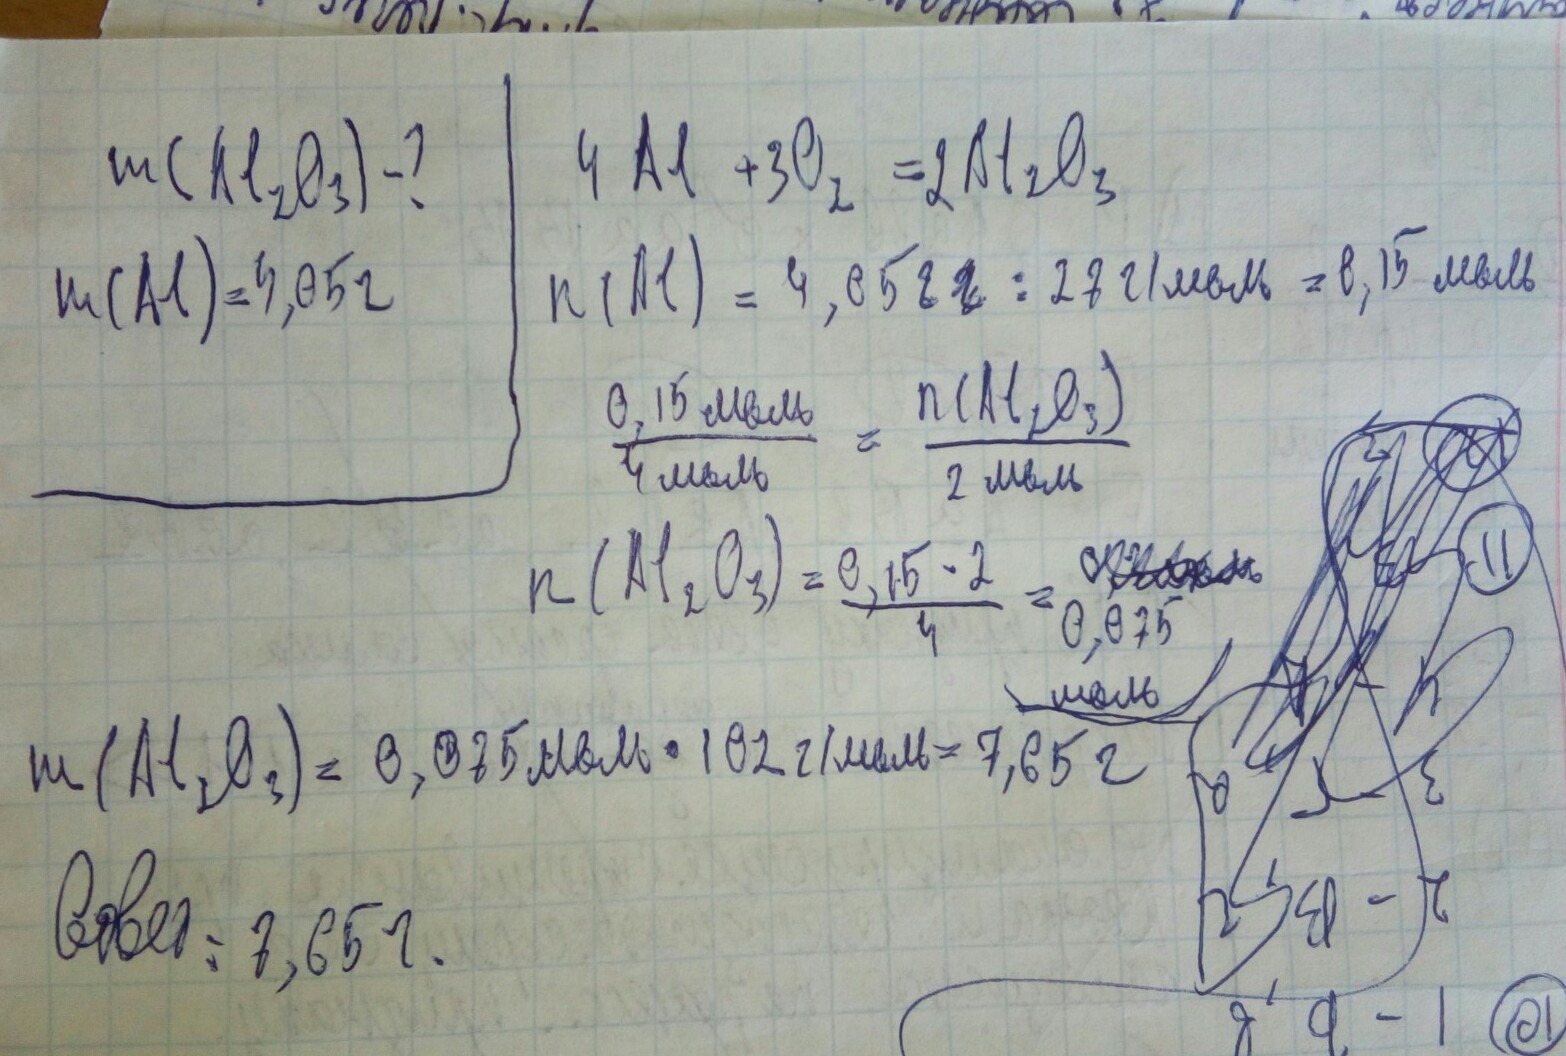 m(Al₂O₃) - ?
m(Al) = 4,05г
4Al + 3O₂ = 2Al₂O₃
n(Al) = 4,05г : 27 г/моль = 0,15 моль
0,15 моль / 4 моль = n(Al₂O₃) / 2 моль
n(Al₂O₃) = 0,15 · 2 / 4 = 0,075
моль
m(Al₂O₃) = 0,075 моль · 102 г/моль = 7,65 г
Ответ: 7,65 г.
11
10